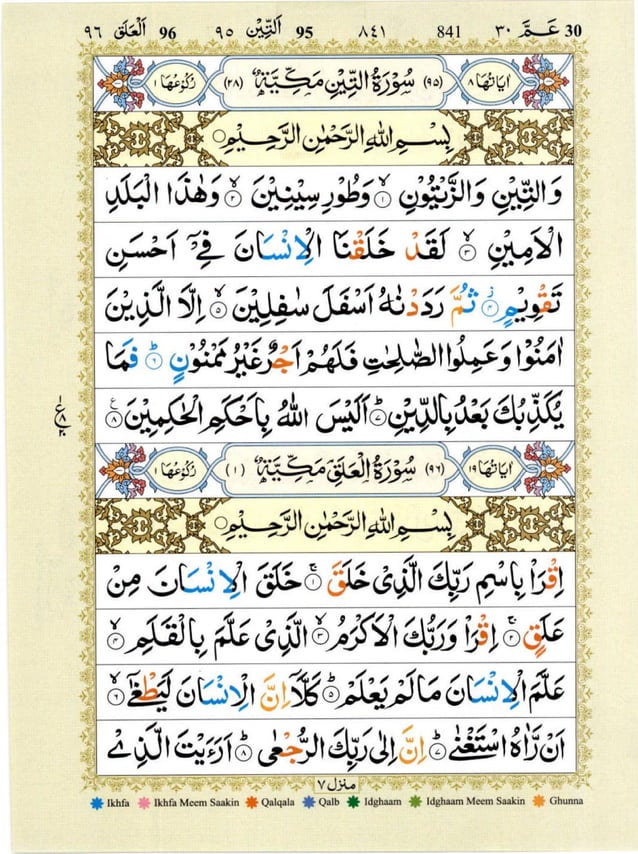 30 عَـمَّ ٣٠ 841 ٨٤١ 95 اَلتِّيْن ٩٥ 96 اَلْعَلَق ٩٦
اٰيَاتُهَا ٨ (٩٥) سُوْرَةُ التِّيْنِ مَكِّيَّةٌ (٢٨) رُكُوْعُهَا ١
بِسْمِ اللّٰهِ الرَّحْمٰنِ الرَّحِيْمِ
وَالتِّيْنِ وَالزَّيْتُوْنِ ۙ‏﴿۱﴾ وَطُوْرِ سِيْنِيْنَ ۙ‏﴿۲﴾ وَهٰذَا الْبَلَدِ
الْاَمِيْنِ ۙ‏﴿۳﴾ لَقَدْ خَلَقْنَا الْاِنْسَانَ فِيْۤ اَحْسَنِ
تَقْوِيْمٍ ؗ‏﴿۴﴾ ثُمَّ رَدَدْنٰهُ اَسْفَلَ سٰفِلِيْنَ ۙ‏﴿۵﴾ اِلَّا الَّذِيْنَ
اٰمَنُوْا وَعَمِلُوا الصّٰلِحٰتِ فَلَهُمْ اَجْرٌ غَيْرُ مَمْنُوْنٍ ؕ‏﴿۶﴾ فَمَا
يُكَذِّبُكَ بَعْدُ بِالدِّيْنِ ؕ‏﴿۷﴾ اَلَيْسَ اللّٰهُ بِاَحْكَمِ الْحٰكِمِيْنَ ﴿۸﴾
ع ٨
اٰيَاتُهَا ١٩ (٩٦) سُوْرَةُ الْعَلَقِ مَكِّيَّةٌ (١) رُكُوْعُهَا ١
بِسْمِ اللّٰهِ الرَّحْمٰنِ الرَّحِيْمِ
اِقْرَاْ بِاسْمِ رَبِّكَ الَّذِيْ خَلَقَ ۚ‏﴿۱﴾ خَلَقَ الْاِنْسَانَ مِنْ
عَلَقٍ ۚ‏﴿۲﴾ اِقْرَاْ وَرَبُّكَ الْاَكْرَمُ ۙ‏﴿۳﴾ الَّذِيْ عَلَّمَ بِالْقَلَمِ ۙ‏﴿۴﴾
عَلَّمَ الْاِنْسَانَ مَا لَمْ يَعْلَمْ ؕ‏﴿۵﴾ كَلَّاۤ اِنَّ الْاِنْسَانَ لَيَطْغٰٓى ۙ‏﴿۶﴾
اَنْ رَّاٰهُ اسْتَغْنٰى ؕ‏﴿۷﴾ اِنَّ اِلٰى رَبِّكَ الرُّجْعٰى ؕ‏﴿۸﴾ اَرَءَيْتَ الَّذِيْ
منزل ٧
Ikhfa Ikhfa Meem Saakin Qalqala Qalb Idghaam Idghaam Meem Saakin Ghunna